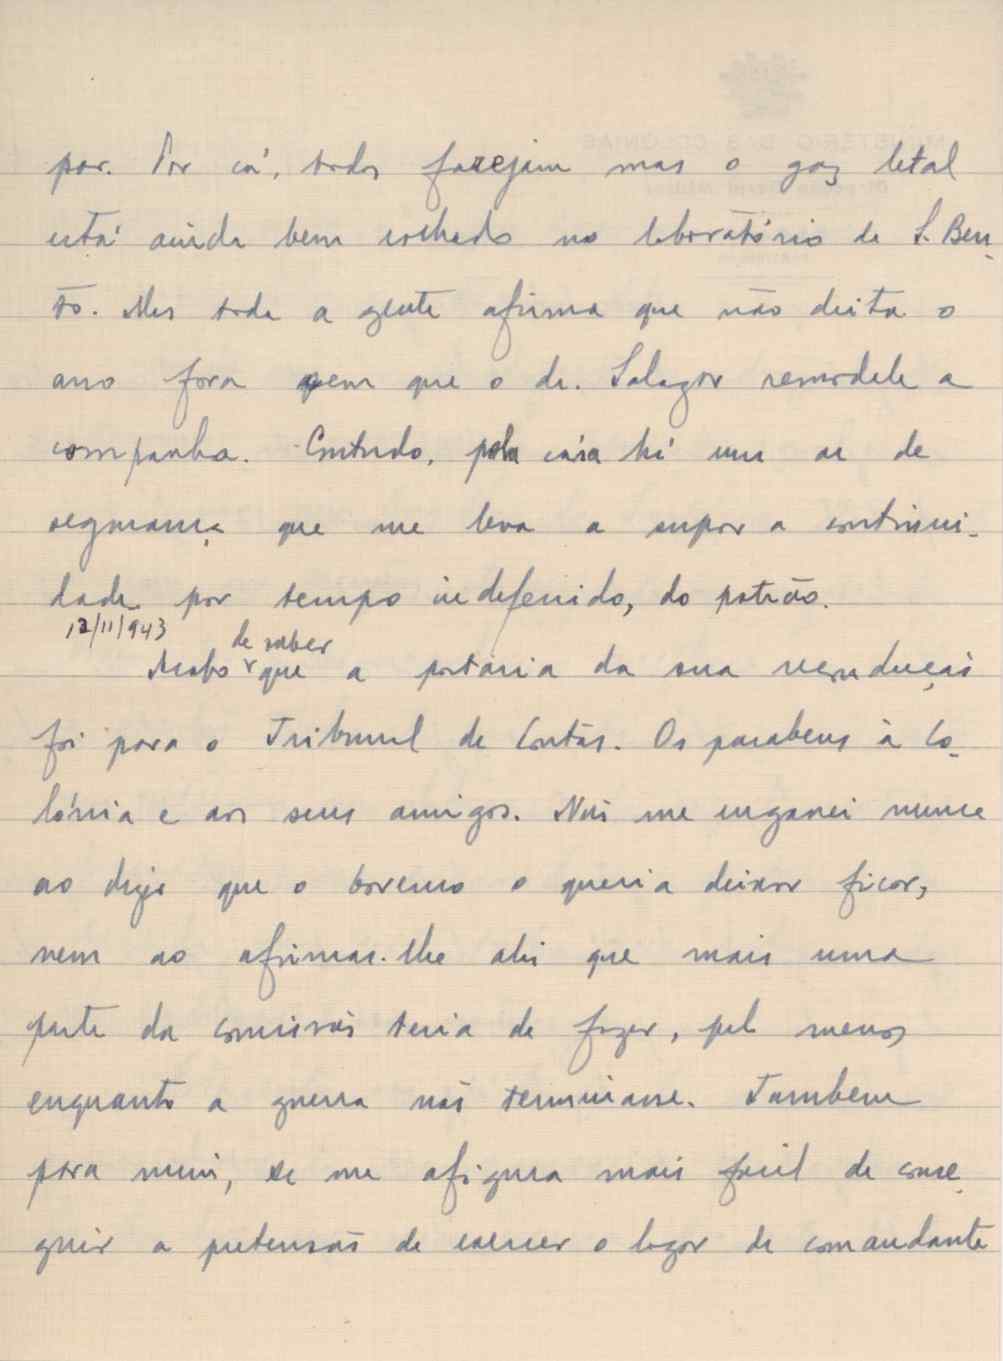 por. Por cá, todos farejam mas o gaz letal
está ainda bem rolhado no laboratório de S. Ben-
to. Mas toda a gente afirma que não deita o
ano fora sem que o dr. Salazar remodele a
companha. Contudo, pela cá há um ar de
segurança que me leva a supor a continui-
dade por tempo indefenido, do patrão.
12/11/943
Acabo de saber que a portaria da sua recondução
foi para o Tribunal de Contas. Os parabens à Co-
lónia e aos seus amigos. Não me enganei nunca
ao dizer que o Governo o queria deixar ficar,
nem ao afirmar-lhe ali que mais uma
parte da comissão teria de fazer, pelo menos
enquanto a guerra não terminasse. Tambem
para mim, se me afigura mais facil de conse-
guir a pretensão de exercer o logar de comandante